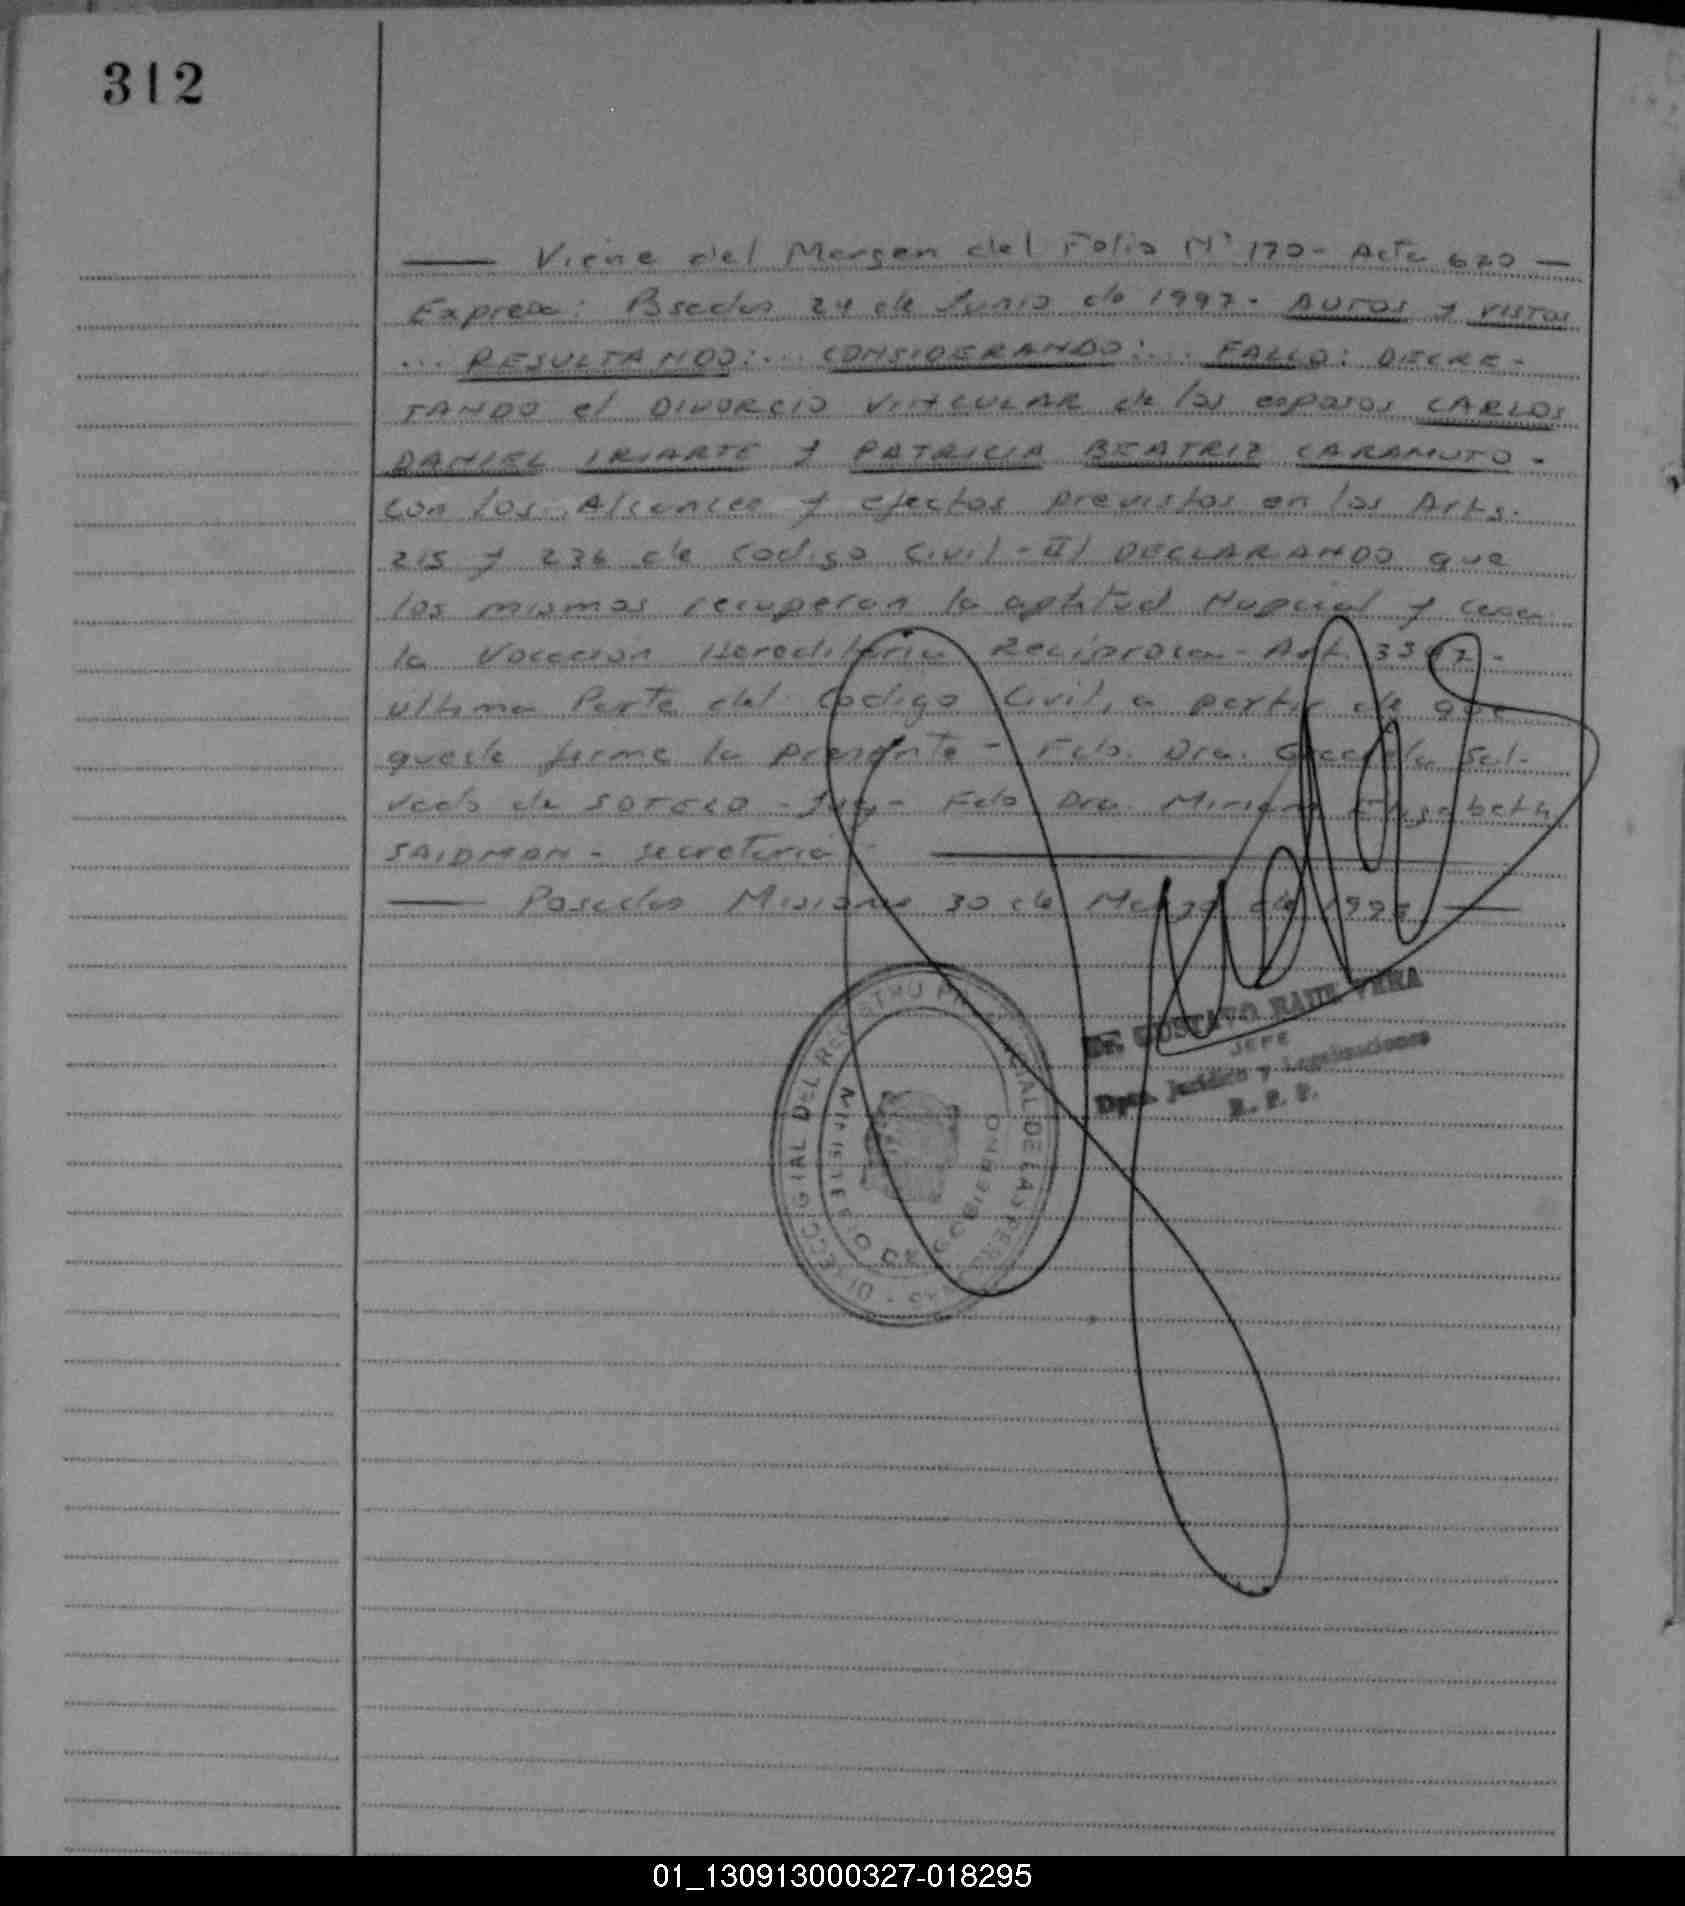 312
Viene del Margen del Folio Nº 170 - Acta 620 —
Expresa: Psadas 24 de Junio de 1997. AUTOS y VISTOS
... RESULTANDO: ... CONSIDERANDO: ... FALLO: DECRE-
TANDO el DIVORCIO VINCULAR de los esposos CARLOS
DANIEL IRIARTE y PATRICIA BEATRIZ CARAMUTO -
con los Alcances y efectos previstos en los Arts.
215 y 236 de Codigo Civil - II) DECLARANDO que
los mismos recuperan la aptitud Nupcial y cesa
la Vocacion Hereditaria Reciproca - Art.
ultima Parte del Codigo Civil, a partir de que
quede firme la presente - Fdo. Dra. Graciela Sal-
vado de SOTELO - Juez - Fdo Dra. Miriam Elisabeth
SAIDMAN - Secretaria -
— Posadas Misiones 30 de Marzo de —
DIRECC. GRAL DEL REGISTRO PROVINCIAL DE LAS PERSONAS
MINISTERIO DE GOBIERNO
Dr. GUSTAVO RAUL VERA
JEFE
Dpto. Jurídico y Legalizaciones
R. P. P.
01_130913000327-018295